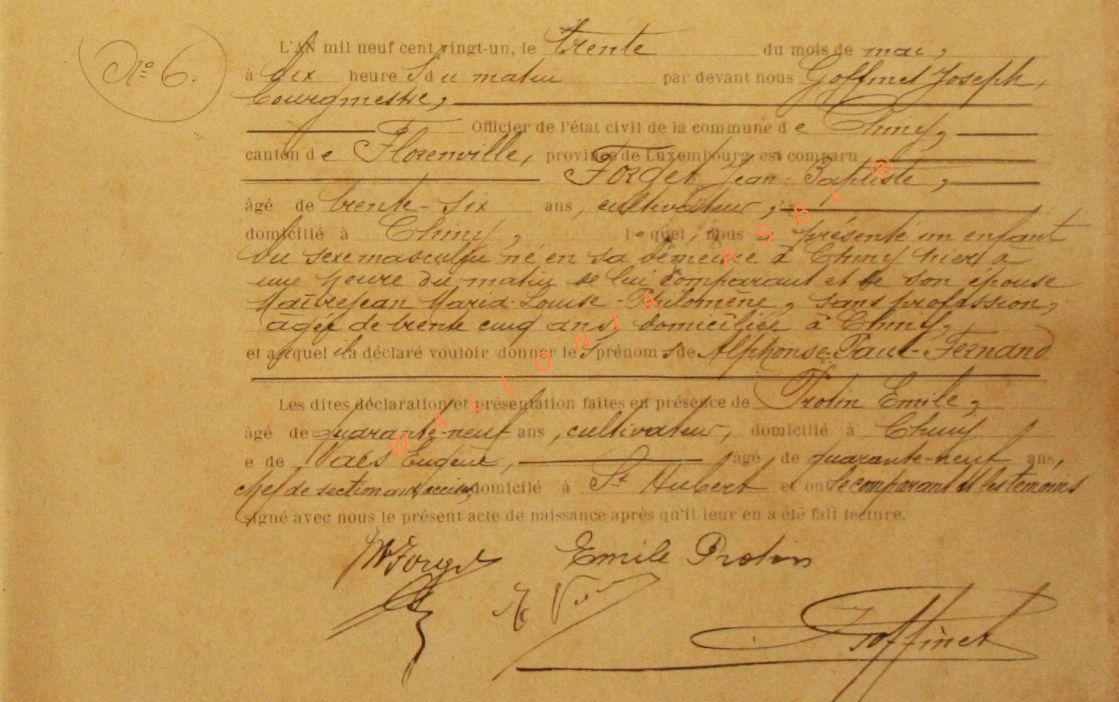 N° 6.
L'AN mil neuf cent vingt-un, le trente du mois de mai,
à dix heures du matin par devant nous Goffinet Joseph,
bourgmestre,
Officier de l'état civil de la commune de Chiny,
canton de Florenville, province de Luxembourg est comparu
Forget Jean-Baptiste,
âgé de trente-six ans, cultivateur,
domicilié à Chiny, lequel, nous a présenté un enfant
du sexe masculin né en sa demeure à Chiny hier à
une heure du matin de lui comparant et de son épouse
Maitrejean Maria-Louise-Philomène, sans profession,
âgée de trente cinq ans, domiciliée à Chiny,
et auquel il a déclaré vouloir donner les prénoms de Alphonse-Paul-Fernand
Les dites déclaration et présentation faites en présence de Protin Emile,
âgé de quarante-neuf ans, cultivateur, domicilié à Chiny
e de Vaes Eugène, âgé de quarante-neuf ans,
chef de section aux accises, domicilié à St Hubert et ont le comparant et les témoins
signé avec nous le présent acte de naissance après qu'il leur en a été fait lecture.
Forget Emile Protin
Goffinet
WALLONIA ASBL ®